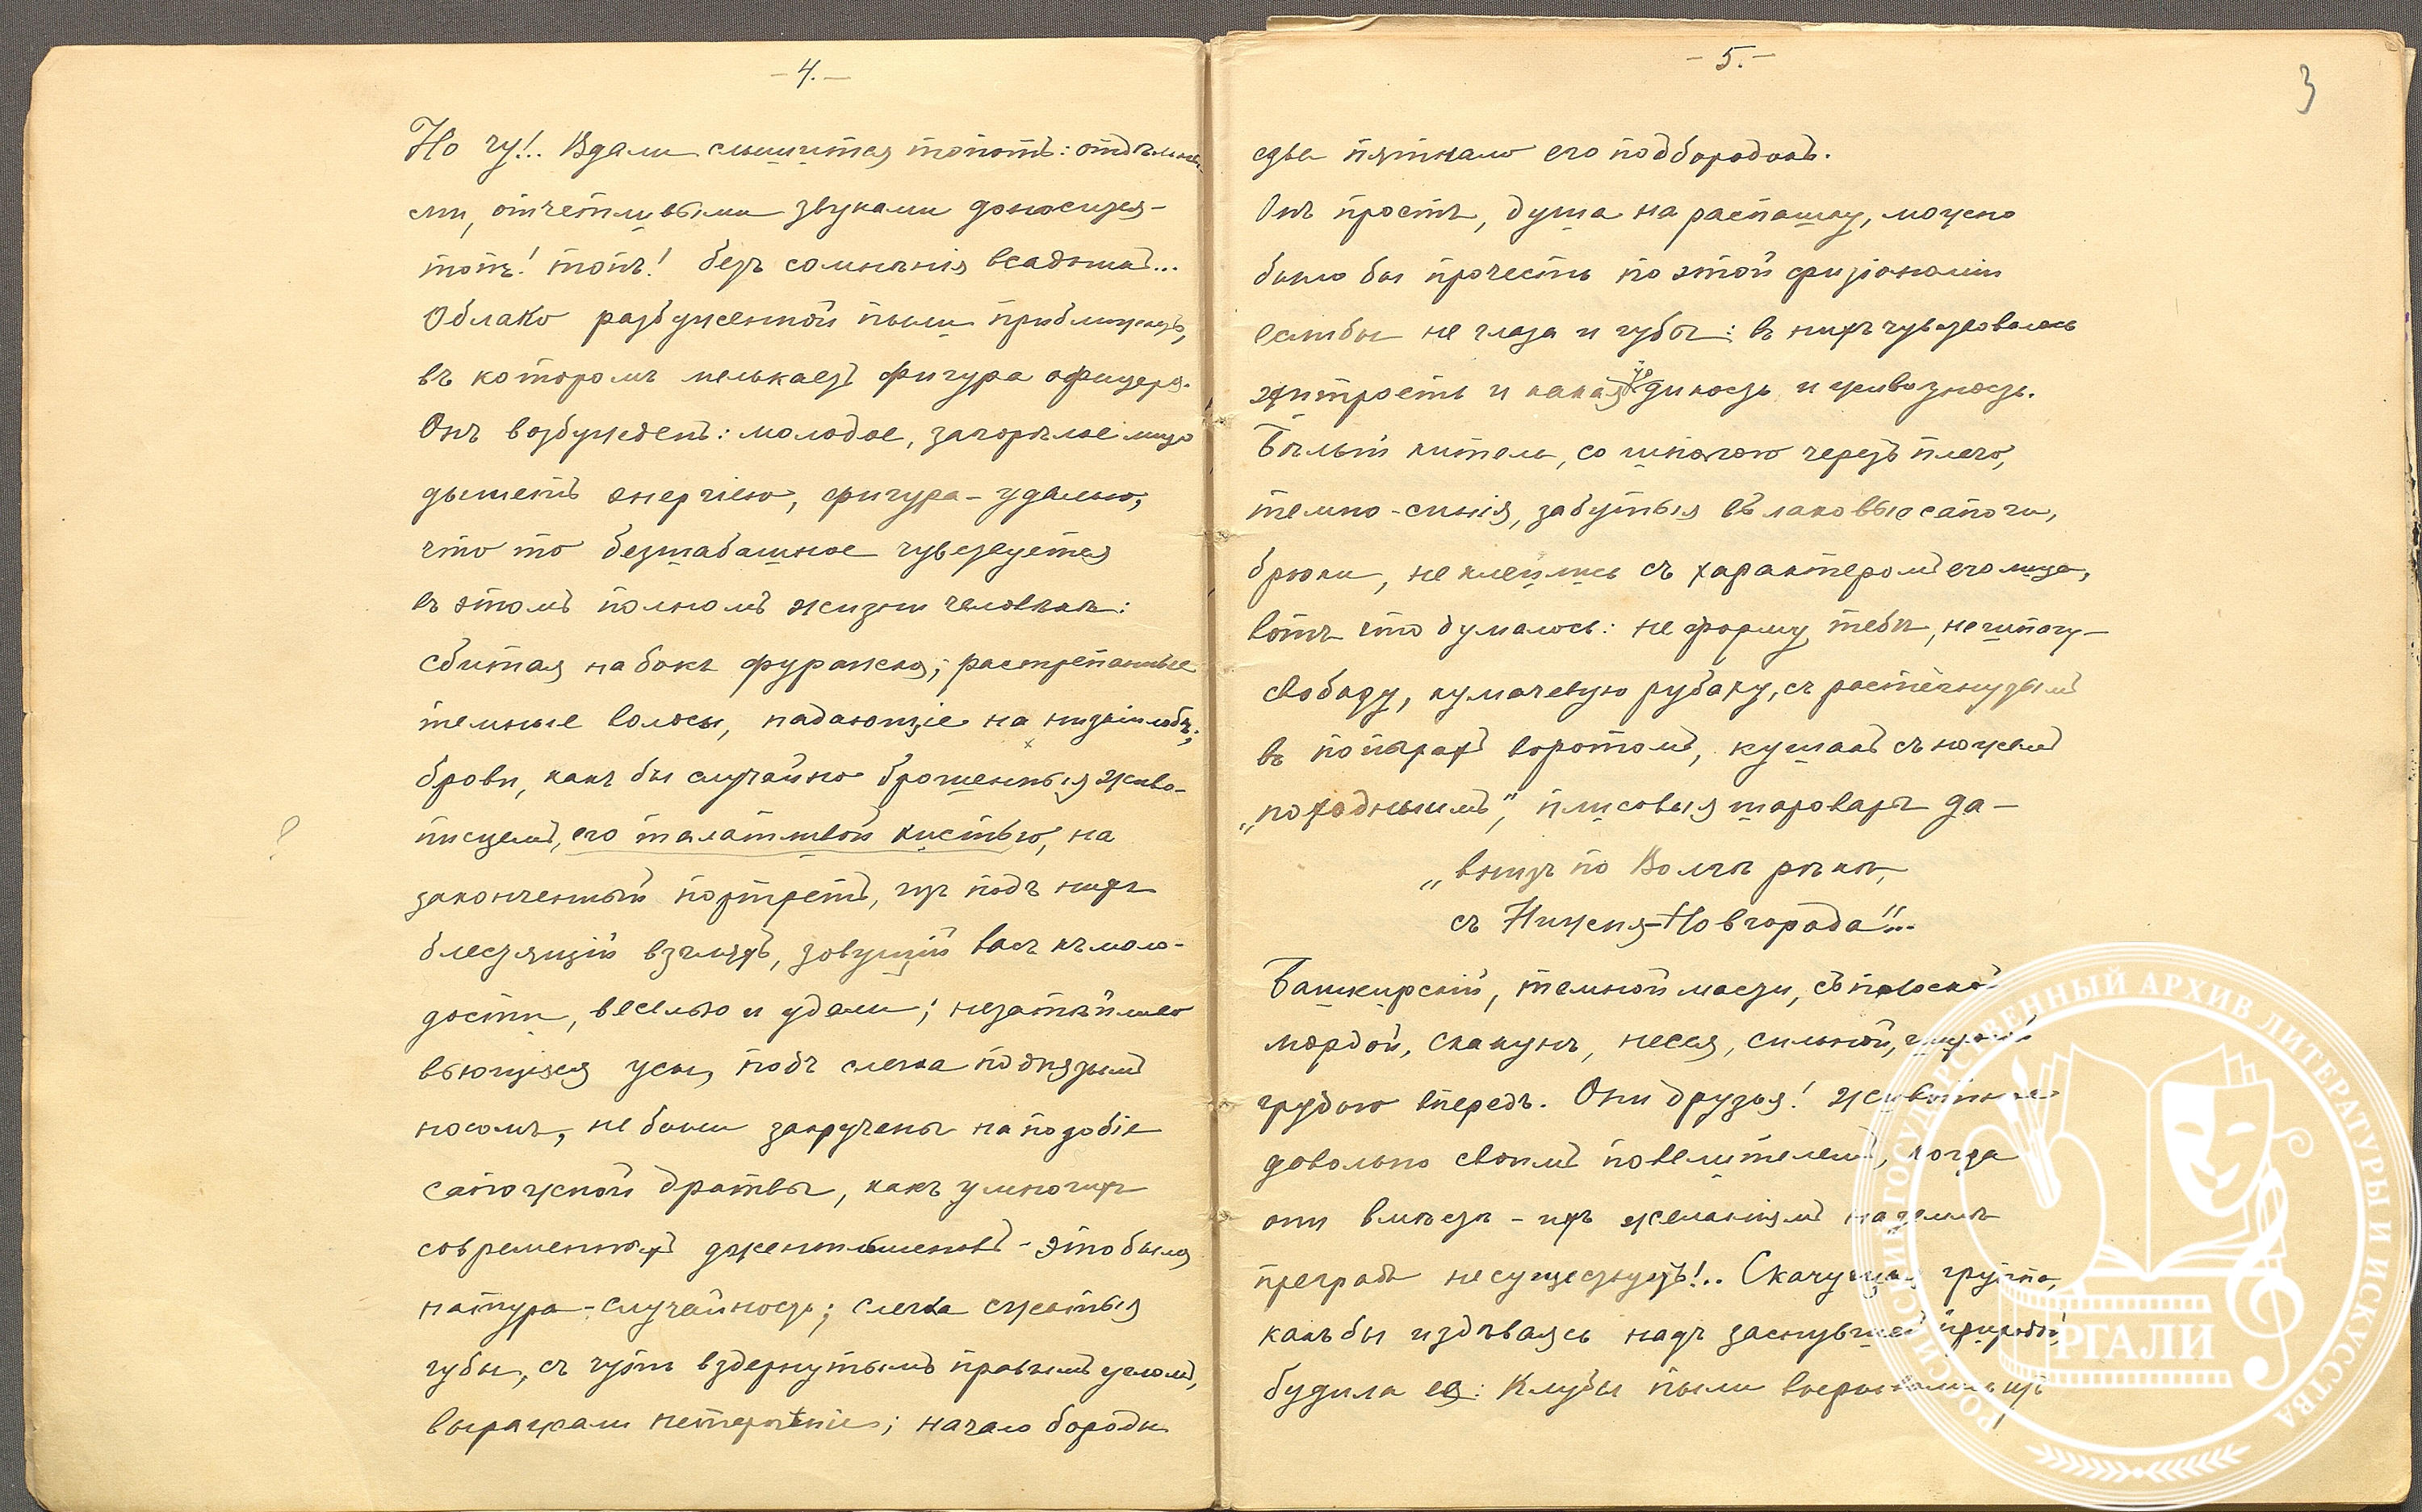 - 4. -
Но чу!.. Вдали слышится топотъ: отдѣльны-
ми, отчетливыми звуками доносится -
топъ! топъ! безъ сомнѣнія всадникъ...
Облако разбуженной пыли приближается,
въ которомъ мелькаетъ фигура офицера.
Онъ возбужденъ: молодое, загорѣлое лицо
дышетъ энергіею, фигура - удалью,
что то безшабашное чувствуется
въ этомъ полномъ жизни человѣкѣ:
сбитая на бокъ фуражка; растрепанные
темные волосы, падающіе на низкій лобъ;
брови, какъ бы случайно брошенныя живо-
писцемъ, его талатливой кистью, на
законченный портретъ, изъ подъ нихъ
блестящій взглядъ, зовущій васъ къ моло-
дости, веселью и удали; незатѣйливо
вьющіяся усы, подъ слегка поднятымъ
носомъ, не были закручены на подобіе
сапожной дратвы, какъ у многихъ
современныхъ джентльменовъ - это была
натура - случайность; слегка сжатыя
губы, съ чуть вздернутымъ правымъ угломъ,
выражали нетерпѣніе; начало бороды
- 5. -
3
едва пятнало его подбородокъ.
Онъ простъ, душа на распашку, можно
было бы прочесть по этой физіономіи
еслибы не глаза и губы: въ нихъ чувствовалась
хитрость и какая то дикость и
Бѣлый китель, со шпагою черезъ плечо,
темно-синія, забутыя въ лаковые сапоги,
брюки, не клеились съ характеромъ его лица,
вотъ что думалось: не форму тебѣ, не шпагу -
свободу, кумачевую рубаху, съ растегнутымъ
въ попыхахъ воротомъ, кушакъ съ ножемъ
„походнымъ", плисовыя шаровары да -
„внизъ по Волгѣ рѣкѣ,
съ Нижня-Новгорода"...
Башкирскій, темной масти, съ плоской
мордой, скакунъ, несся, сильной,
грудью впередъ. Они друзья! животное
довольно своимъ повелителемъ, когда
они вмѣстѣ - ихъ желаніямъ на землѣ
преградъ не существуетъ!.. Скачущая группа,
какъ бы издѣваясь надъ заснувшей природой,
будила ее: клубы пыли вырывались изъ
РОССИЙСКИЙ ГОСУДАРСТВЕННЫЙ АРХИВ ЛИТЕРАТУРЫ И ИСКУССТВА
РГАЛИ